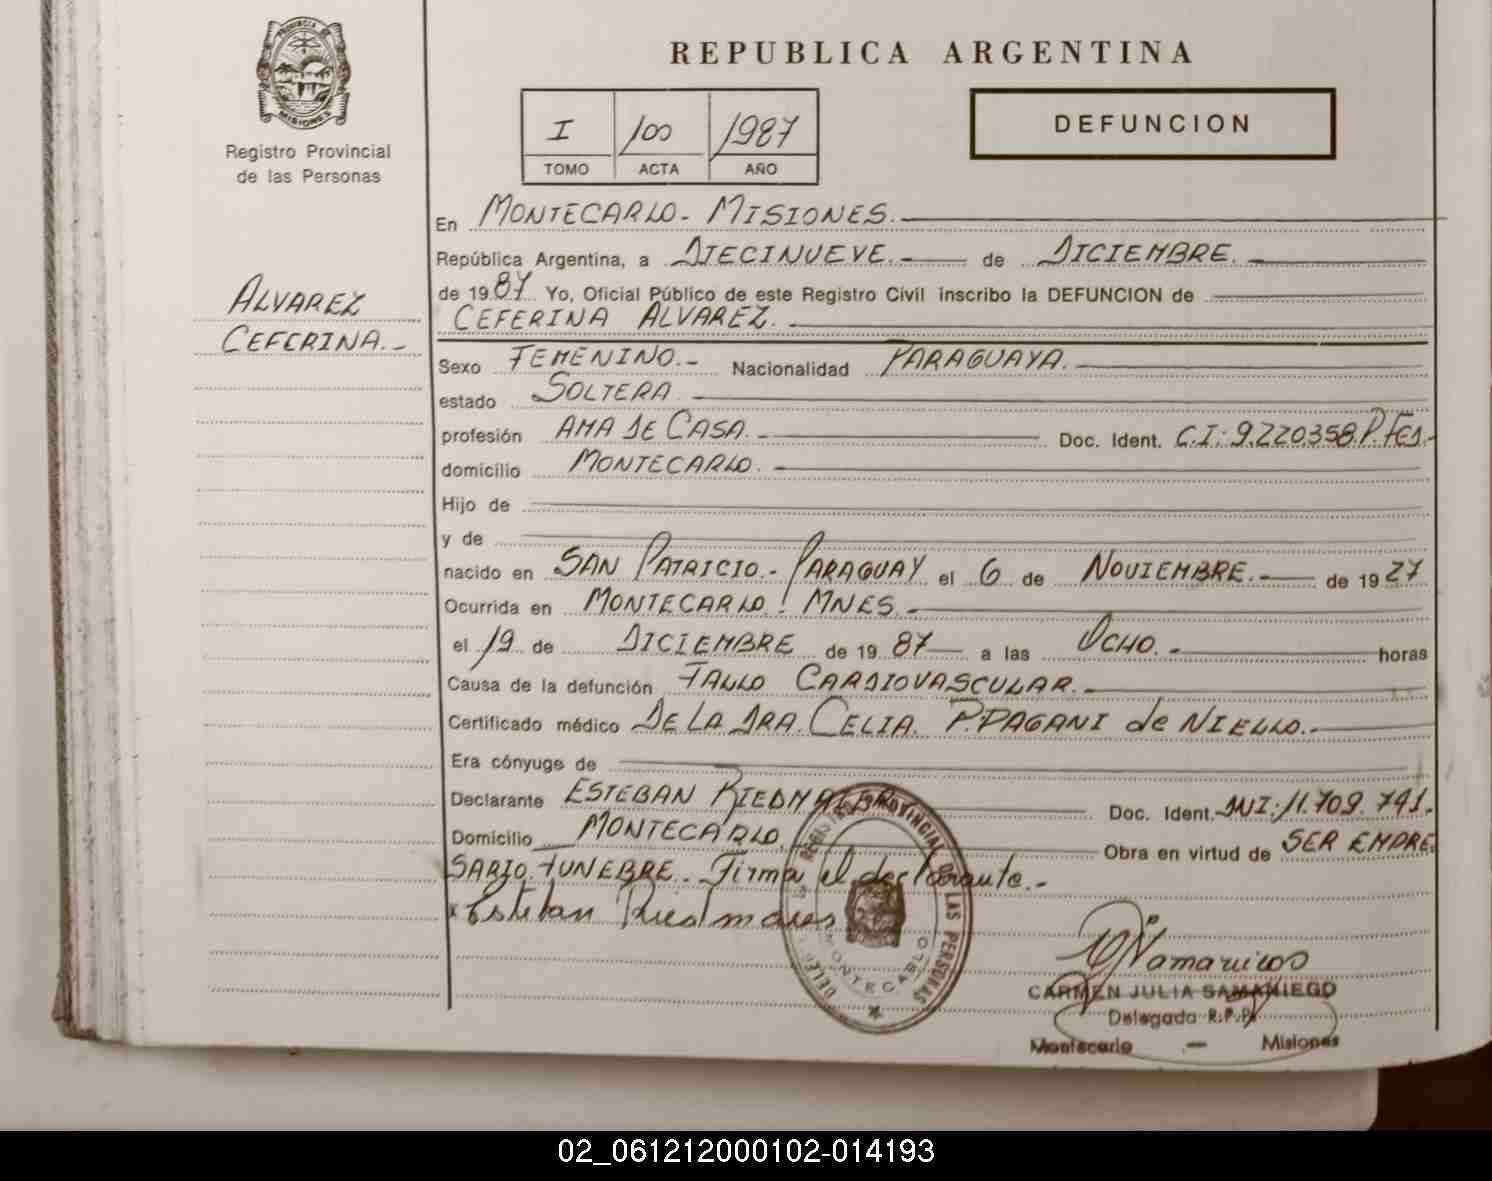 PROVINCIA DE
MISIONES
Registro Provincial
de las Personas
ALVAREZ
CEFERINA.-
REPUBLICA ARGENTINA
I 100 1987
TOMO ACTA AÑO
DEFUNCION
En MONTECARLO - MISIONES.
República Argentina, a DIECINUEVE.- de DICIEMBRE.
de 1987 Yo, Oficial Público de este Registro Civil inscribo la DEFUNCION de
CEFERINA ALVAREZ.
Sexo FEMENINO.- Nacionalidad PARAGUAYA.
estado SOLTERA
profesión AMA DE CASA.- Doc. Ident. C.I: 9.220358.P.FED.-
domicilio MONTECARLO.
Hijo de
y de
nacido en SAN PATRICIO.- PARAGUAY el 6 de NOVIEMBRE.- de 1927
Ocurrida en MONTECARLO! MNES.
el 19 de DICIEMBRE de 1987 a las OCHO.- horas
Causa de la defunción FALLO CARDIOVASCULAR.
Certificado médico DE LA DRA. CELIA. P. PAGANI de NIELLO.-
Era cónyuge de
Declarante ESTEBAN RIEDMAIER Doc. Ident. DNI: 11.709.741.-
Domicilio MONTECARLO, Obra en virtud de SER EMPRE
SARIO FUNEBRE.- Firma el declarante.-
x Esteban
REGISTRO PROVINCIAL DE LAS PERSONAS
MONTECARLO
CARMEN JULIA SAMANIEGO
Delegada R.P.P.
Montecarlo - Misiones
02_061212000102-014193